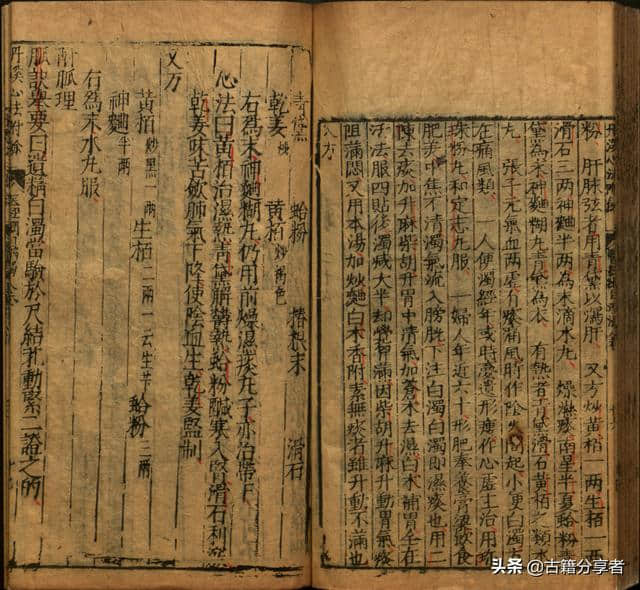 粉 肝脉弦者用青黛以瀉肝 又方炒黄栢一两生栢一两
滑石三两神麯半两為末滴水丸 燥濕痰南星半夏蛤粉青
黛為末神麯糊丸青黛為衣 有熱者青黛滑石黄栢之類水
丸 張子元氣血两虚有痰痛風時作陰火間起小便白濁
在痛風類 一人便濁經年或時夢遺形瘦作心虚主治用珎
珠粉丸和定志丸服 一婦人年近六十形肥奉養膏粱飲食
肥美中焦不清濁氣流入膀胱下注白濁白濁即濕痰也用二
陳去痰加升麻柴胡升胃中清氣加蒼术去濕白术補胃全在
活法服四貼後濁减大半却覺胷滿因柴胡升麻升動胃氣痰
阻滿悶又用本湯加炒麯白术香附素無痰者雖升動不滿也
又方
青黛 蛤粉 椿根末 滑石
乾姜炒 黄栢炒褐色
右為末神麯糊丸仍用前燥濕痰丸子亦治帶下
心法曰黄栢治濕熱青黛解鬱熱蛤粉鹹寒入腎滑石利
乾姜味苦歛肺氣下降使陰血生乾姜監制
又方
黄栢炒黑一两 生栢二两一云生芐 蛤粉三两
神麯半两
右為末水丸服
附脉理
脉訣舉要曰遺精白濁當驗於尺結芤動緊二證之的
丹溪心法附餘
頭条 @古籍分享者